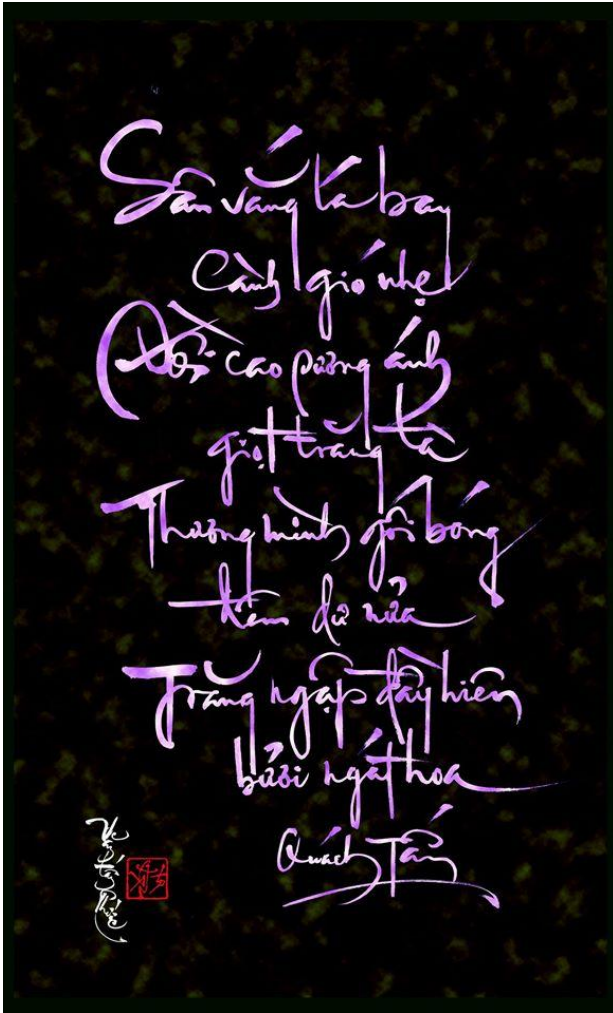 Sân vắng lá bay
Cành gió nhẹ
Đồi cao sương ánh
giọt trăng tà
Thương mình gối bóng
đêm dư nửa
Trăng ngập đầy hiên
bưởi ngát hoa
Quách Tấn